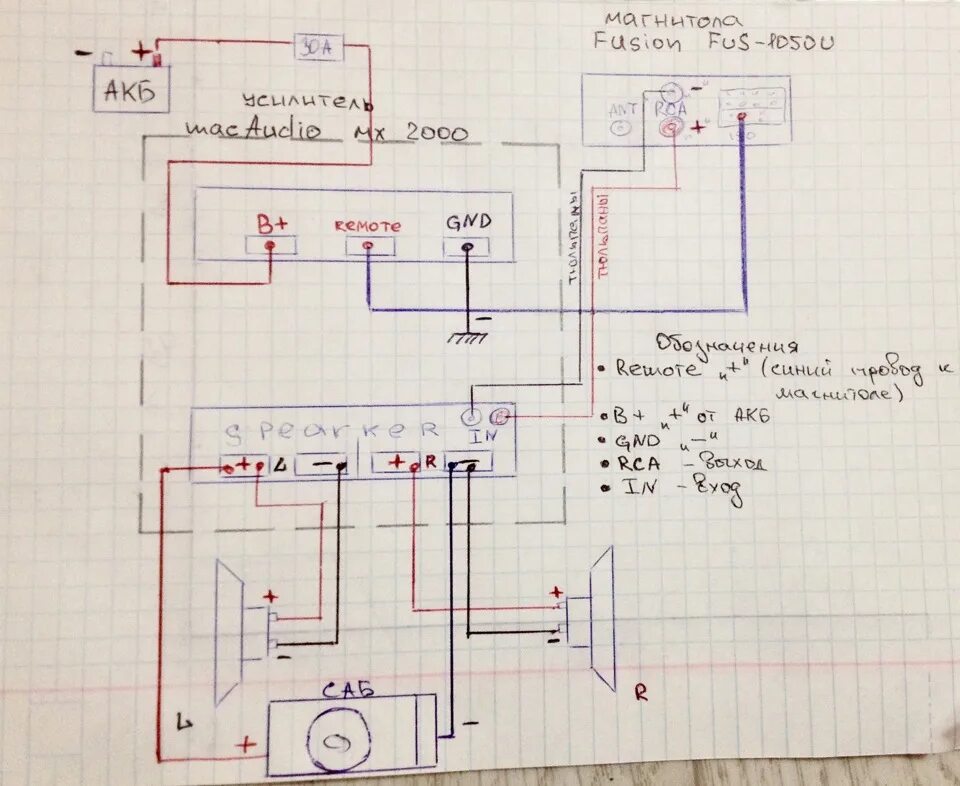 магнитола
Fusion FUS-1050U
- +
30A
АКБ
усилитель
macAudio мх 2000
ANT RCA
-
"+"
B+ Remote GND
тюльпаны
тюльпаны
-
Обозначения
• Remote „+" (синий провод к
магнитоле)
• B+ „+" от АКБ
• GND „-"
• RCA - выход
• IN - вход
SpearkeR IN
+ L - + R -
+
-
+
-
R
САБ
L
+
-